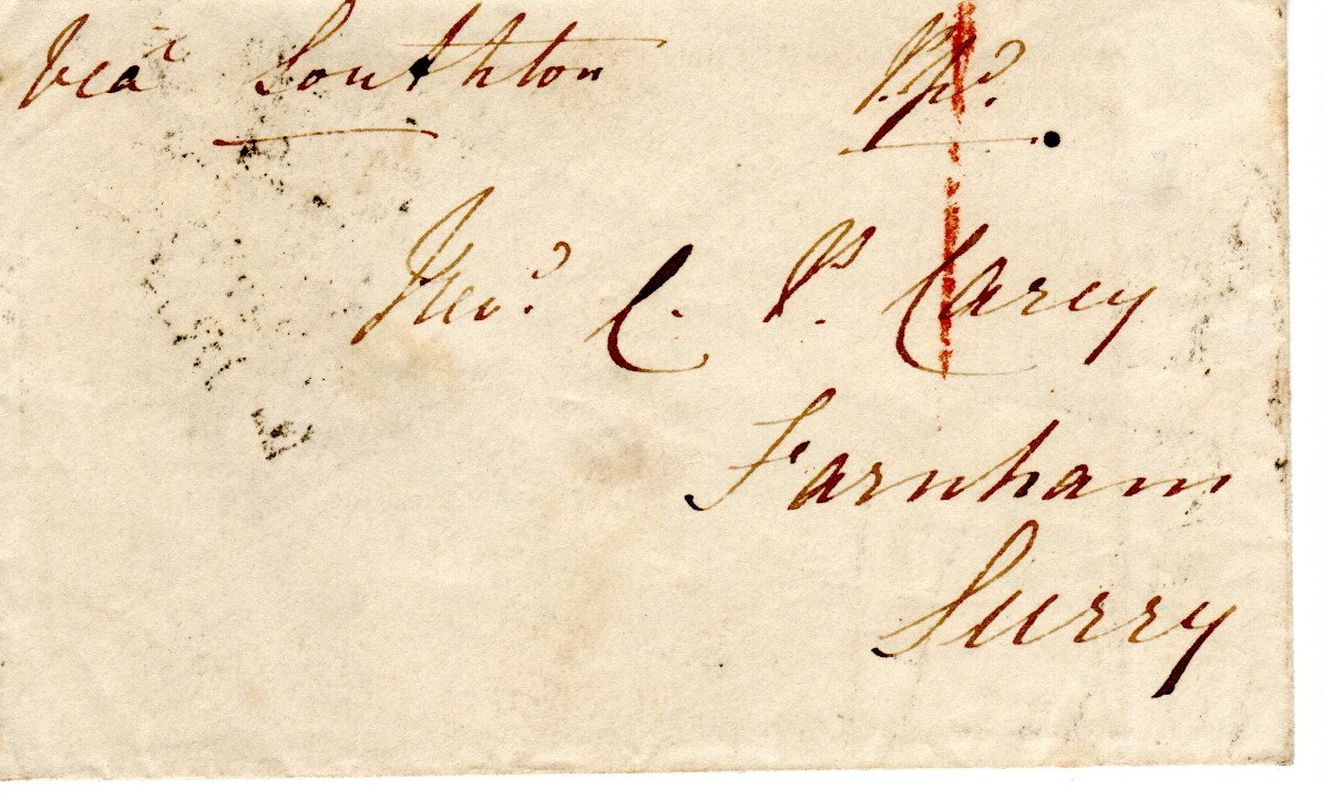 Via Southton P.pd.
Revd. C. P. Carey
Farnham
Surry